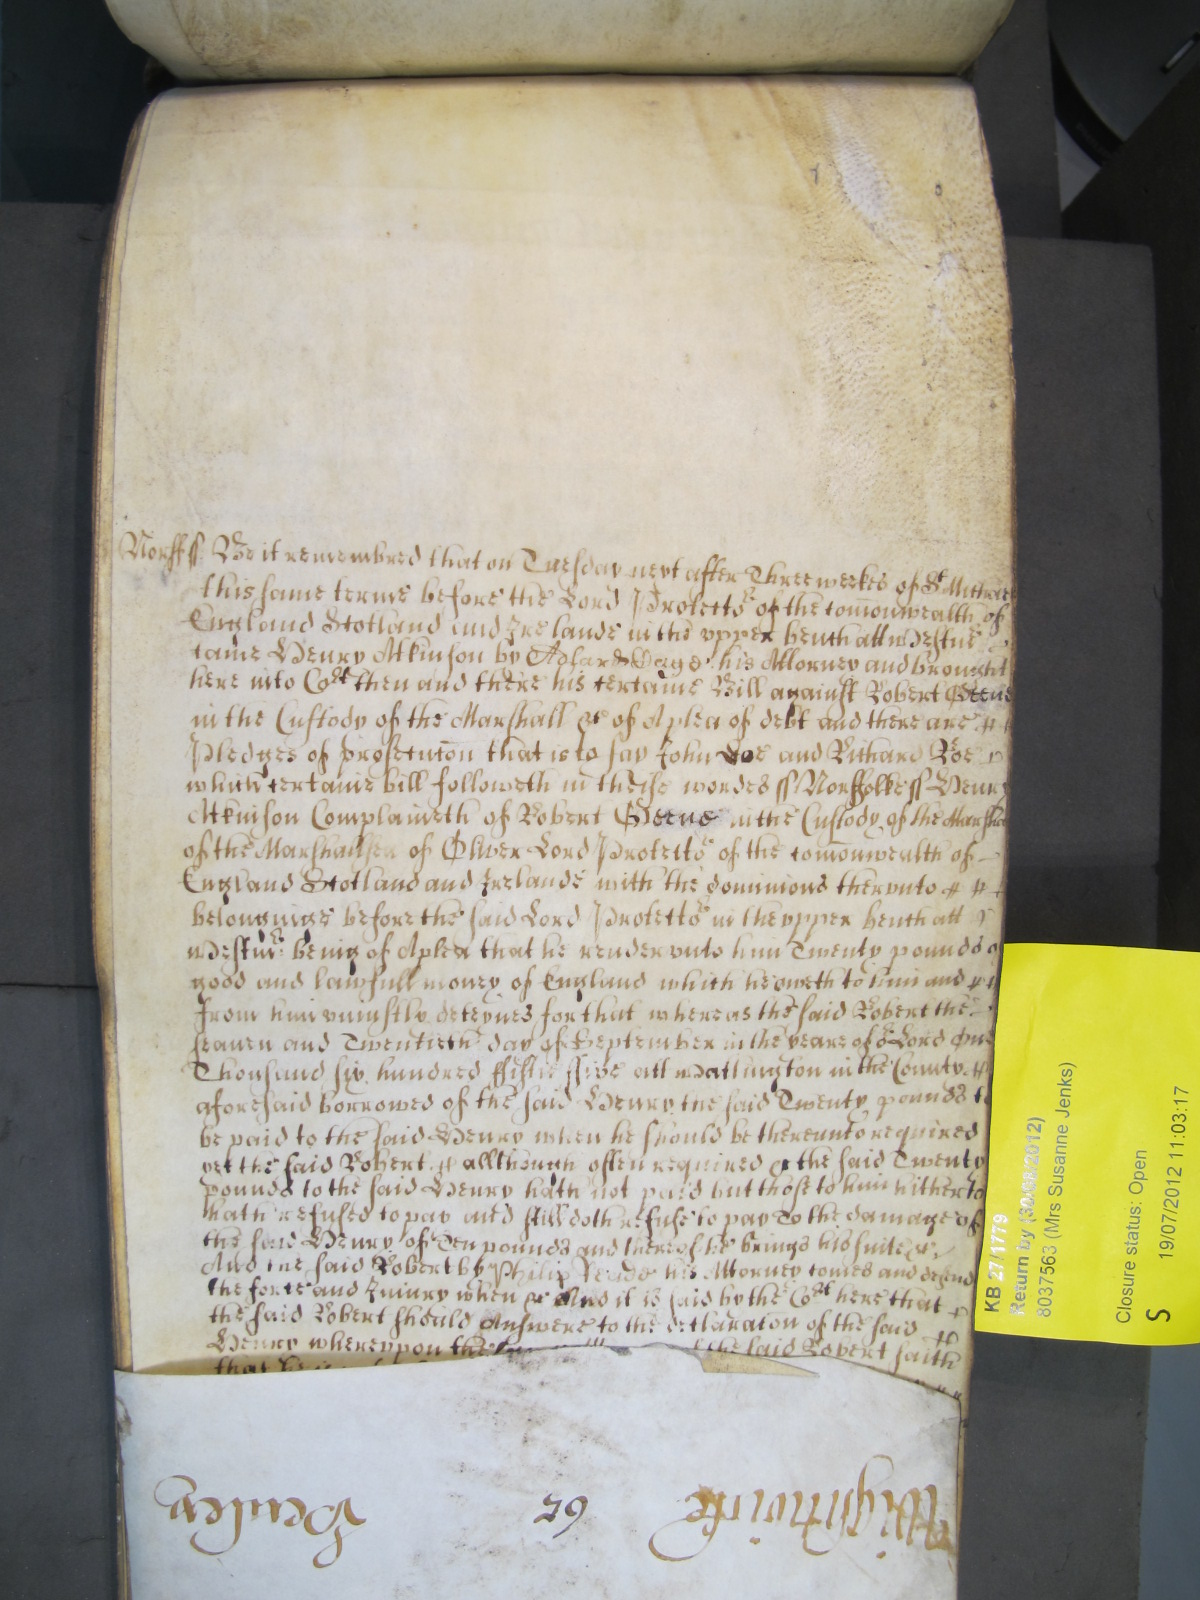 Norff ss Be it remembred that on Tuesday next after Three weekes of St Michaell
this same terme before the Lord Protector of the comonwealth of
England Scotland and Irelande in the upper bench att Westmr
came Henry Atkinson by his Attorney and brought
here into Cort then and there his certaine Bill against Robert Steene
in the Custody of the Marshall &c of A plea of debt and there are
Pledges of prosecucon that is to say John Doe and Richard Roe
which certaine bill followeth in theise wordes ss Norffolke ss Henry
Atkinson Complaineth of Robert Steene in the Custody of the Marshall
of the Marshallsea of Oliver Lord Protector of the comonwealth of
England Scotland and Irelande with the dominions therunto
belonginge before the said Lord Protector in the upper bench att
Westmr being of A plea that he render unto him Twenty pounds of
good and lawfull money of England which he oweth to him and
from him uniustly deteynes for that whereas the said Robert the
seaven and Twentieth day of September in the yeare of or Lord One
Thousand six hundred fiftie five att Watlington in the County
aforesaid borrowed of the said Henry the said Twenty pounds to
be paid to the said Henry when he should be thereunto required
yet the said Robert allthough often required the said Twenty
pounds to the said Henry hath not paid but those to him hitherto
hath refused to pay and still doth refuse to pay To the damage of
the said Henry of Ten pounds and thereof he brings his suite &c
And the said Robert by Philip Reade his Attorney comes and defends
the force and Iniury when &c And it is said by the Cort here that
the said Robert should Answere to the declaracon of the said
Henry whereupon the said Robert saith
that he
Wightwicke
62
Henley
KB 27/1779
Return by (30/08/2012)
8037563 (Mrs Susanne Jenks)
Closure status: Open
S 19/07/2012 11:03:17